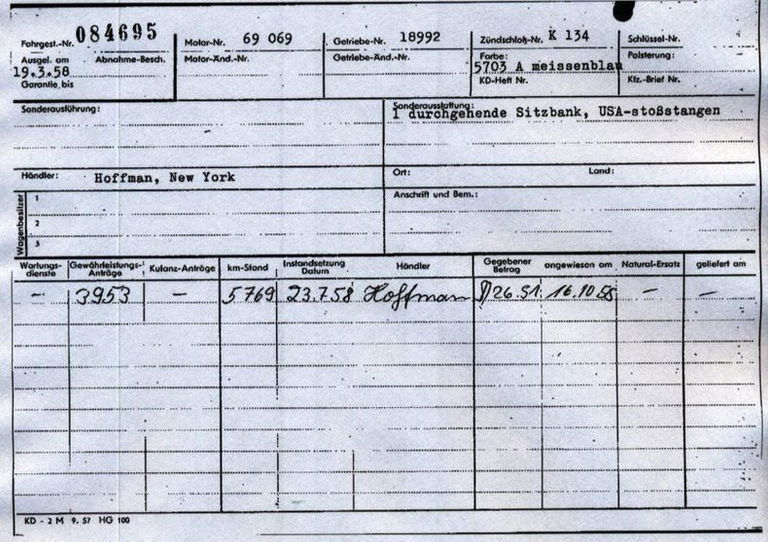 Fahrgest.-Nr. 084695 Motor-Nr. 69 069 Getriebe-Nr. 18992 Zündschloß-Nr. K 134 Schlüssel-Nr.
Ausgel. am Abnahme-Besch. Motor-Änd.-Nr. Getriebe-Änd.-Nr. Farbe: Polsterung:
19.3.58 5703 A meissenblau
Garantie bis KD-Heft Nr. Kfz.-Brief Nr.
Sonderausführung: Sonderausstattung:
1 durchgehende Sitzbank, USA-stoßstangen
Händler: Hoffman, New York Ort: Land:
Wagenbesitzer 1 Anschrift und Bem.:
2
3
Wartungs-dienste Gewährleistungs-Anträge Kulanz-Anträge km-Stand Instandsetzung Datum Händler Gegebener Betrag angewiesen am Natural-Ersatz geliefert am
— 3953 — 5769 23.7.58 Hoffman 26.51 16.10.58 — —
KD - 2 M 9. 57 HG 100